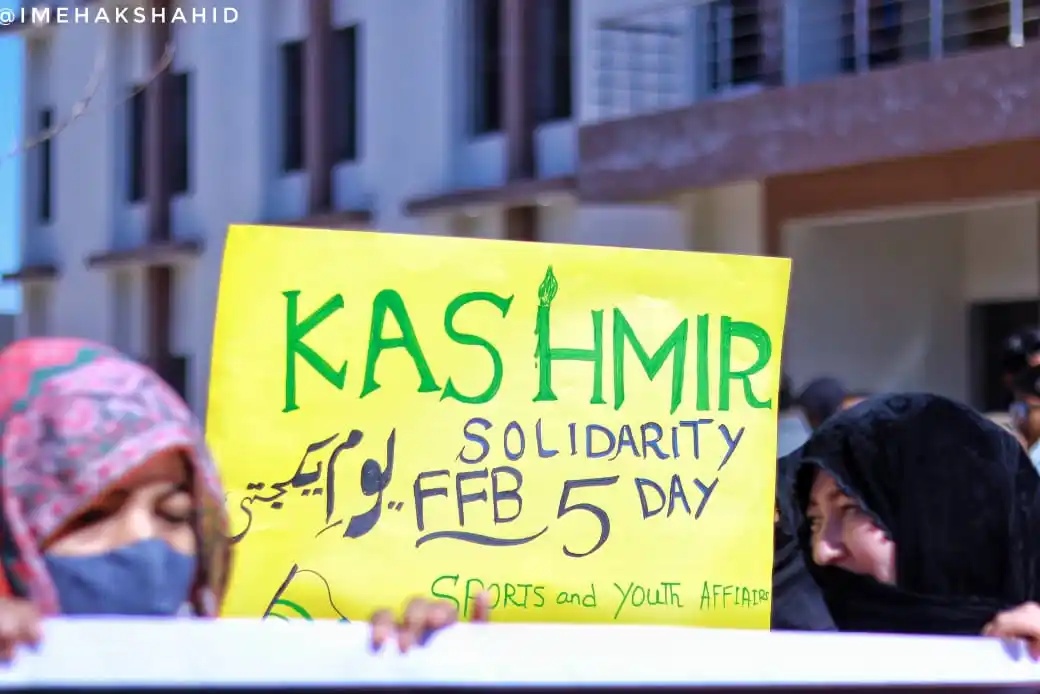 @IMEHAKSHAHID
KASHMIR
SOLIDARITY
یومِ یکجہتی
FFB 5 DAY
SPORTS and YOUTH AFFIAIRS